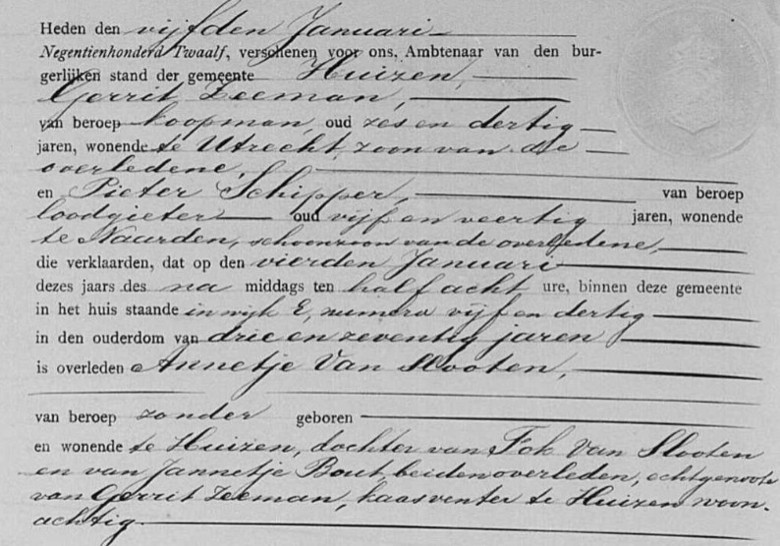 Heden den vijfden Januari
Negentienhonderd Twaalf, verschenen voor ons, Ambtenaar van den bur-
gerlijken stand der gemeente Huizen,
Gerrit Zeeman,
van beroep koopman, oud zes en dertig
jaren, wonende te Utrecht, zoon van de
overledene,
en Pieter Schipper, van beroep
loodgieter oud vijf en veertig jaren, wonende
te Naarden, schoonzoon van de overledene,
die verklaarden, dat op den vierden Januari
dezes jaars des na middags ten half acht ure, binnen deze gemeente
in het huis staande in wijk E, numero vijf en dertig
in den ouderdom van drie en zeventig jaren
is overleden Annetje Van Slooten,
van beroep zonder geboren
en wonende te Huizen, dochter van Fok Van Slooten
en van Jannetje Bout, beiden overleden, echtgenoote
van Gerrit Zeeman, kaasventer te Huizen woon-
achtig